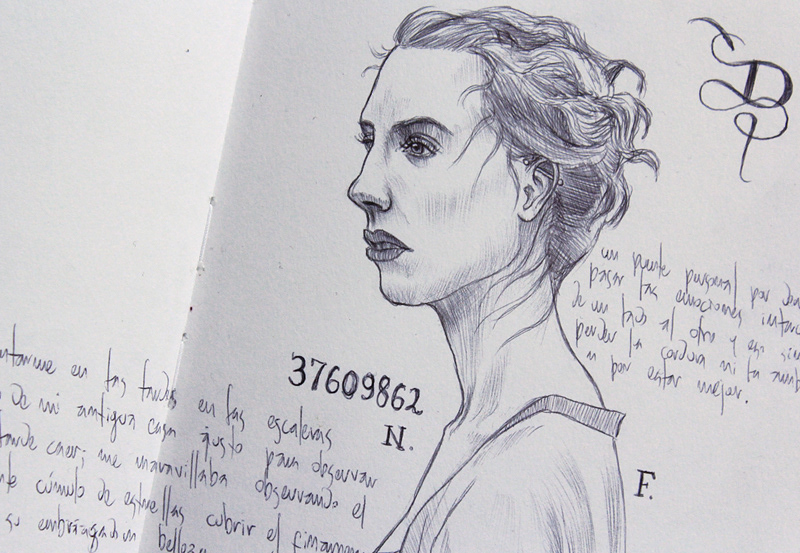 D
un puente personal por
pasar las emociones
de un lado al otro y eso sin
perder la cordura ni la
por estar mejor.
37609862
N.
F.
ntarme en las tardes en las escaleras
de mi antigua casa justo para observar
tarde caer; me maravillaba observando el
nte cúmulo de estrellas cubrir el firmamen
su belleza